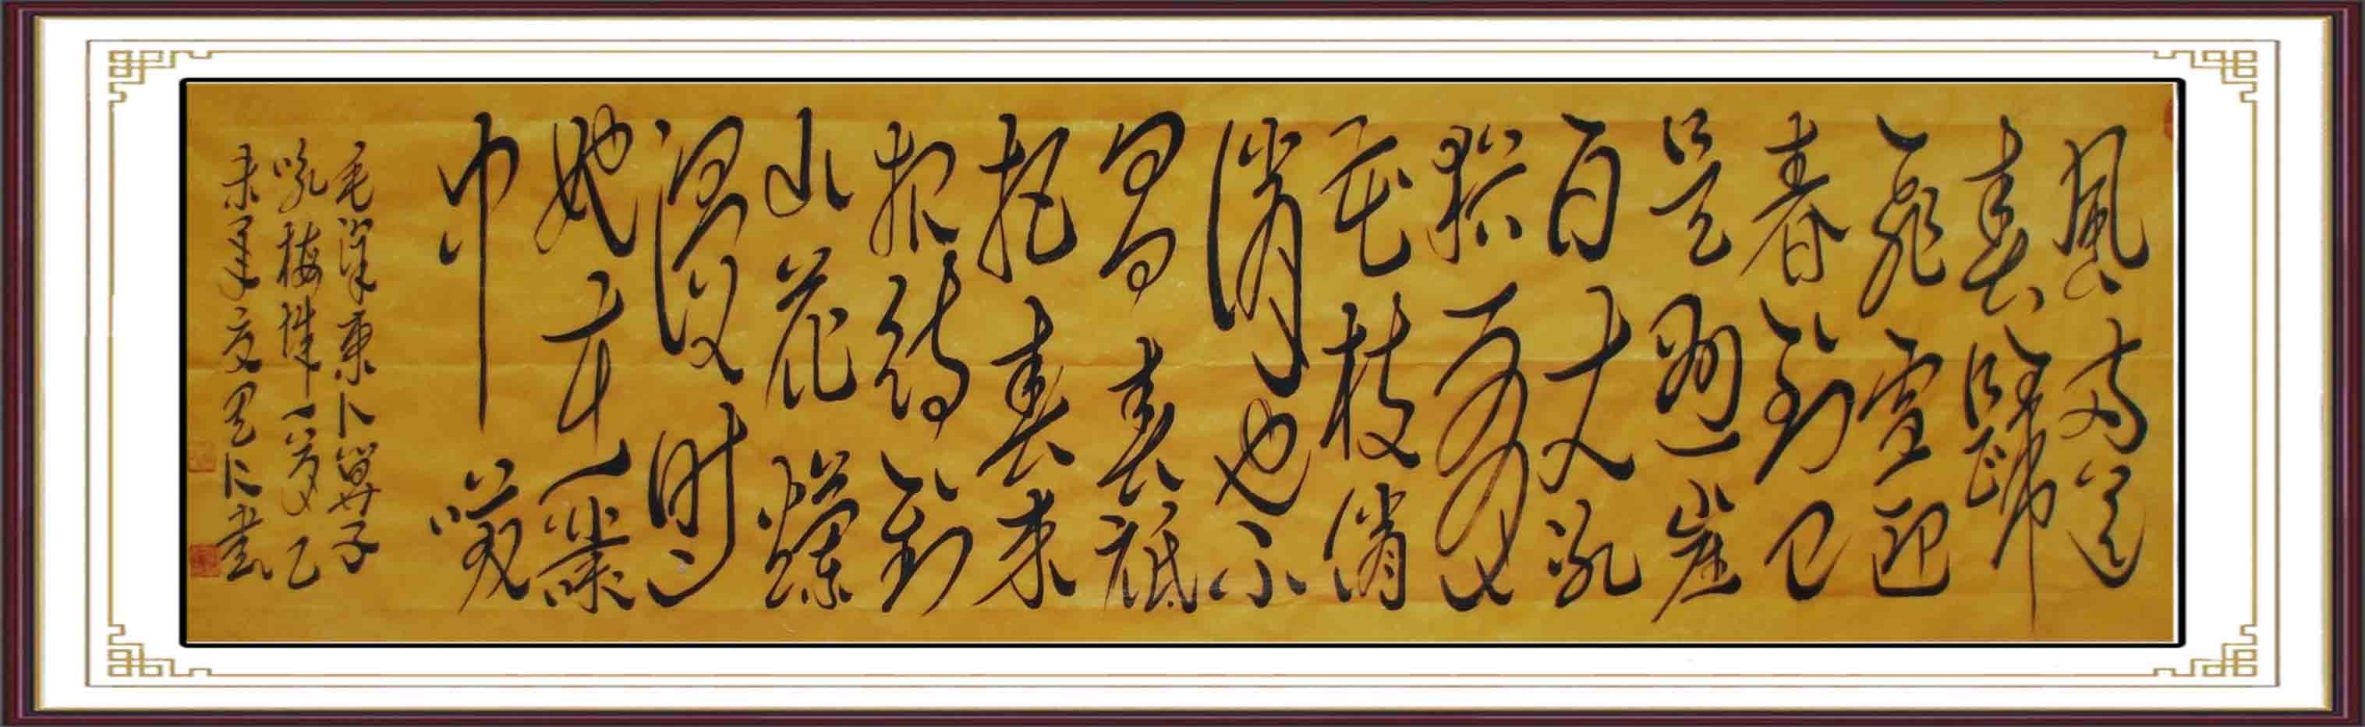 風雨送
春歸
飛雪迎
春到已
是懸崖
百丈冰
猶有
花枝俏
俏也不
爭春祗
把春來
報待到
山花爛
漫时
她在叢
中笑
毛澤東卜算子
咏梅詞一首乙
未夏仁書